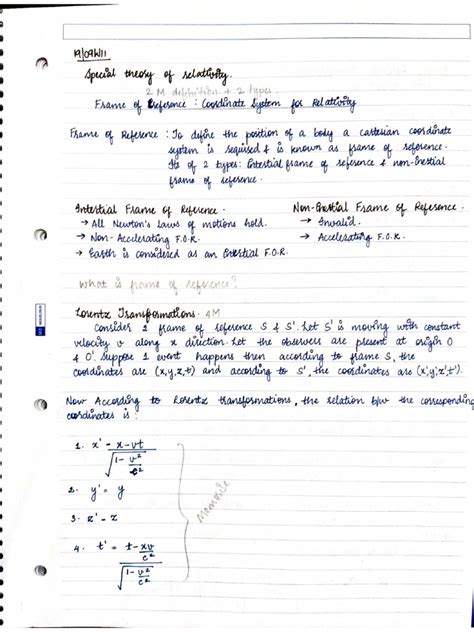 Special theory of relativity.
2 M definition + 2 types.
Frame of Reference : Coordinate System for Relativity
Frame of Reference : To define the position of a body a cartesian coordinate
system is required & is known as frame of reference.
Its of 2 types: Intertial frame of reference & non-Inertial
frame of reference.
Intertial Frame of Reference.
→ All Newton's Laws of motions hold.
→ Non-Accelerating F.O.R.
→ Earth is considered as an Inertial F.O.R.
Non-Inertial Frame of Reference.
→ Invalid.
→ Accelerating F.O.R.
What is frame of reference?
Lorentz Transformations. 4M
Consider 2 frame of reference S & S'. Let S' is moving with constant
velocity v along x direction. Let the observers are present at origin O
& O'. Suppose 1 event happens then according to frame S, the
coordinates are (x,y,z,t) and according to S', the coordinates are (x',y',z',t').
Now According to Lorentz transformations, the relation b/w the corresponding
coordinates is :
1. x' = x-vt / √(1 - v²/c²)
2. y' = y
3. z' = z
4. t' = t - xv/c² / √(1 - v²/c²)
Memorize